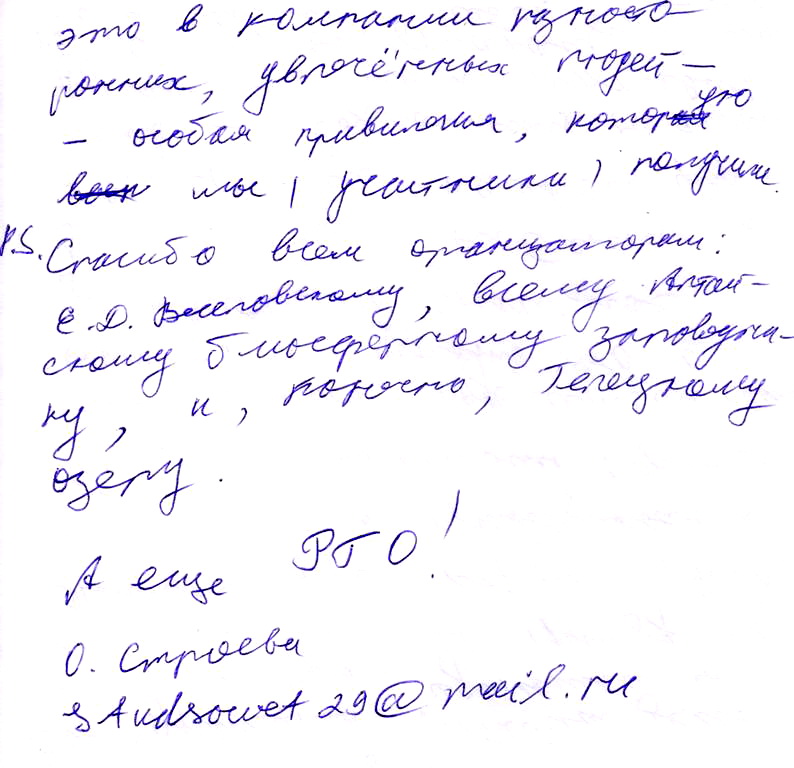 это в компании разносто
ронних, увлечённых людей —
— особая привилегия, которую
мы (участники) получили.
P.S. Спасибо всем организаторам:
Е.Д. всему Алтай-
скому биосферному заповедни-
ку, и, конечно, Телецкому
озеру.
А еще РГО!
О. Строева
@mail.ru